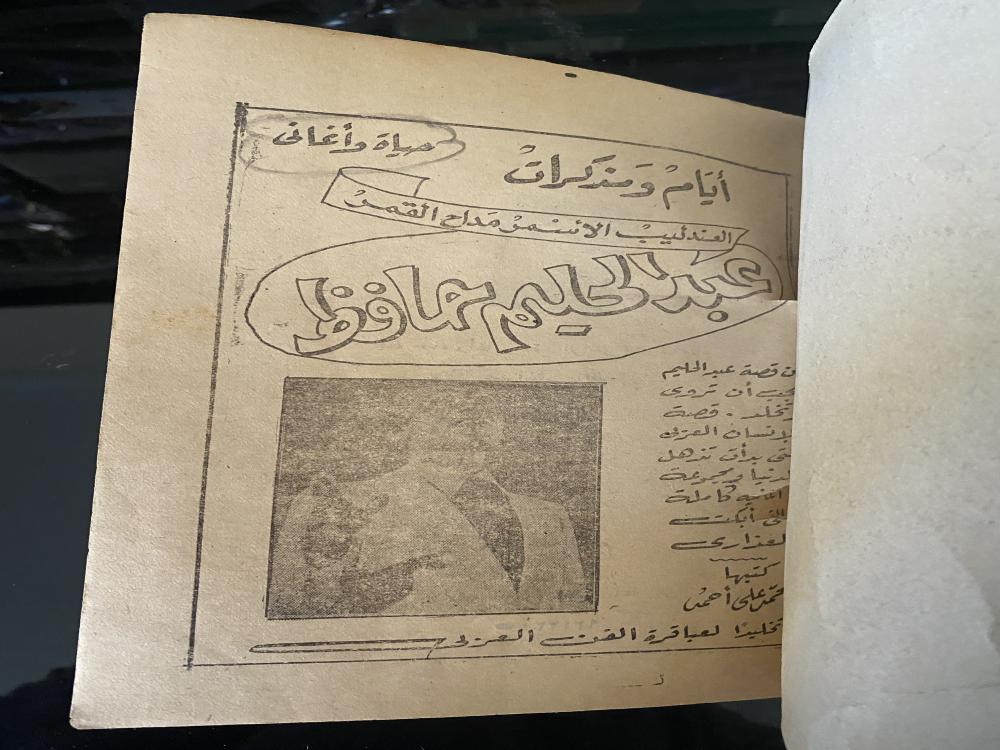 حياة وأغانى
أيام ومذكرات
العندليب الأسمر مداح القمر
عبد الحليم حافظ
ن قصة عبد الحليم
جب أن تروى
وتخلد . قصة
لإنسان العربى
تى بدأت تذهل
لدنيا ومجموعة
أغانيه كاملة
التى أبكت
لعذارى
كتبها
محمد على أحمد
تخليدًا لعباقرة الفن العربى